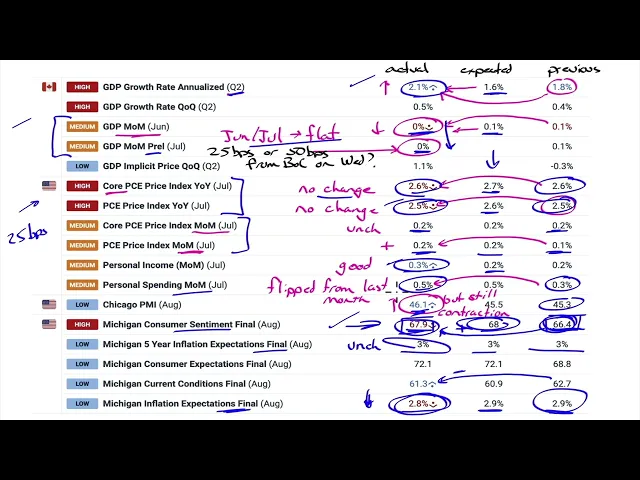 actual expected previous
HIGH GDP Growth Rate Annualized (Q2) 2.1% 1.6% 1.8%
HIGH GDP Growth Rate QoQ (Q2) 0.5% 0.4%
MEDIUM GDP MoM (Jun) 0% 0.1% 0.1%
Jun/Jul → flat
MEDIUM GDP MoM Prel (Jul) 0% 0.1%
25bps or 50bps
from BoC on Wed?
LOW GDP Implicit Price QoQ (Q2) 1.1% -0.3%
HIGH Core PCE Price Index YoY (Jul) no change 2.6% 2.7% 2.6%
HIGH PCE Price Index YoY (Jul) no change 2.5% 2.6% 2.5%
25bps
MEDIUM Core PCE Price Index MoM (Jul) unch 0.2% 0.2% 0.2%
MEDIUM PCE Price Index MoM (Jul) + 0.2% 0.2% 0.1%
MEDIUM Personal Income (MoM) (Jul) good 0.3% 0.2% 0.2%
MEDIUM Personal Spending MoM (Jul) flipped from last month 0.5% 0.5% 0.3%
LOW Chicago PMI (Aug) 46.1 but still contraction 45.5 45.3
HIGH Michigan Consumer Sentiment Final (Aug) 67.9 68 66.4
LOW Michigan 5 Year Inflation Expectations Final (Aug) unch 3% 3% 3%
LOW Michigan Consumer Expectations Final (Aug) 72.1 72.1 68.8
LOW Michigan Current Conditions Final (Aug) 61.3 60.9 62.7
LOW Michigan Inflation Expectations Final (Aug) 2.8% 2.9% 2.9%